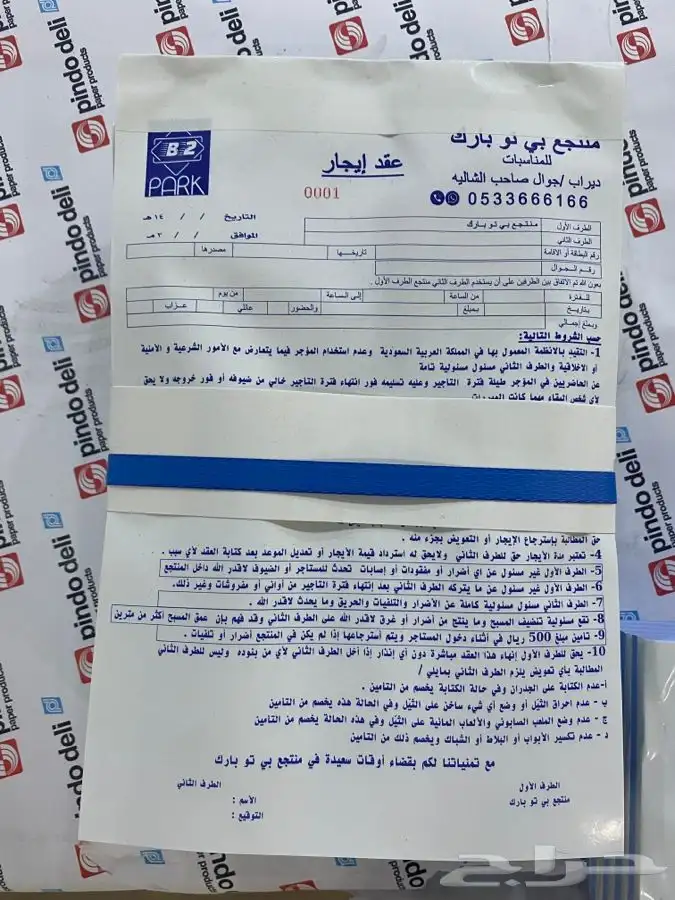 منتجع بي تو بارك
للمناسبات
ديراب /جوال صاحب الشاليه
0533666166
عقد إيجار
0001
B2
PARK
التاريخ / / ١٤هـ
الموافق / / ٢٠م
الطرف الأول منتجع بي تو بارك
الطرف الثاني
رقم البطاقة أو الاقامة تاريخــها مصدرها
رقــم الــجوال
بعون الله تم الاتفاق بين الطرفين على أن يستخدم الطرف الثاني منتجع الطرف الأول .
للفترة من الساعة إلى الساعة من يوم
بتاريخ بمبلغ والحضور عائلي عزاب
وبمبلغ إجمالي
حسب الشروط التالية:
1- التقيد بالانظمة المعمول بها في المملكة العربية السعودية وعدم استخدام المؤجر فيما يتعارض مع الأمور الشرعية و الأمنية
أو الاخلاقية والطرف الثاني مسئول مسئولية تامة
عن الحاضريين في المؤجر طيلة فترة التأجير وعليه تسليمه فور انتهاء فترة التأجير خالي من ضيوفه أو فور خروجه ولا يحق
لأي شخص البقاء مهما كانت المبررات
حق المطالبة بإسترجاع الإيجار أو التعويض بجزء منه .
4- تعتبر مدة الأيجار حق للطرف الثاني ولايحق له استرداد قيمة الأيجار أو تعديل الموعد بعد كتابة العقد لأي سبب .
5- الطرف الأول غير مسئول عن اي أضرار أو مفقودات أو إصابات تحدث للمستأجر أو الضيوف لاقدر الله داخل المنتجع
6- الطرف الأول غير مسئول عن ما يتركه الطرف الثاني بعد إنتهاء فترة التأجير من أواني أو مفروشات وغير ذلك.
7- الطرف الثاني مسئول مسئولية كاملة عن الأضرار والتلفيات والحريق وما يحدث لاقدر الله .
8- تقع مسئولية تنظيف المسبح وما ينتج من أضرار أو غرق لاقدر الله على الطرف الثاني وقد فهم بإن عمق المسبح أكثر من مترين
9- تأمين مبلغ 500 ريال في أثناء دخول المستأجر ويتم أسترجاعها إذا لم يكن في المنتجع أضرار أو تلفيات .
10- يحق للطرف الأول إنهاء هذا العقد مباشرة دون أي إنذار إذا أخل الطرف الثاني لأي من بنوده وليس للطرف الثاني
المطالبة بأي تعويض يلزم الطرف الثاني بمايلي /
أ-عدم الكتابة على الجدران وفي حالة الكتابة يخصم من التأمين .
ب - عدم احراق الثيّل أو وضع أي شيء ساخن على الثيّل وفي الحالة هذه يخصم من التأمين
ج - عدم وضع الملعب الصابوني والألعاب المائية على الثيّل وفي هذه الحالة يخصم من التأمين
د - عدم تكسير الأبواب أو البلاط أو الشباك ويخصم ذلك من التأمين
مع تمنياتنا لكم بقضاء أوقات سعيدة في منتجع بي تو بارك
الطرف الأول
منتجع بي تو بارك
الطرف الثاني
الأسم :
التوقيع :
pindo deli
paper products
حراج